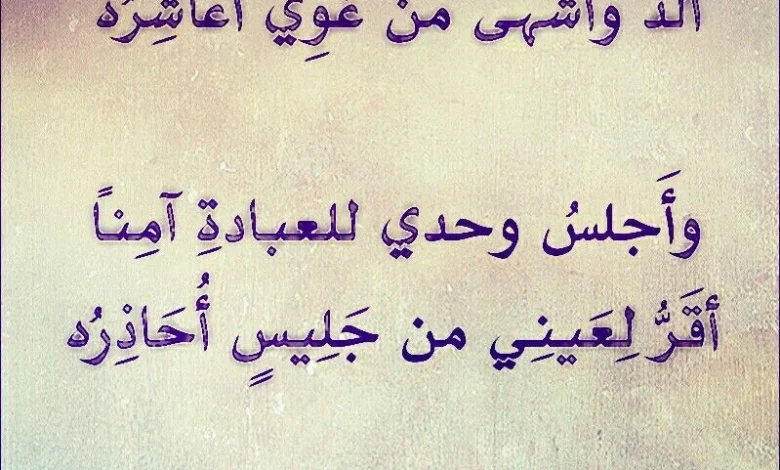 ألذ وأشهى من غَوِي أعاشِرُه
وأَجلسُ وحدي للعبادةِ آمِناً
أقَرُّ لِعَينِي من جَلِيسٍ أُحَاذِرُه